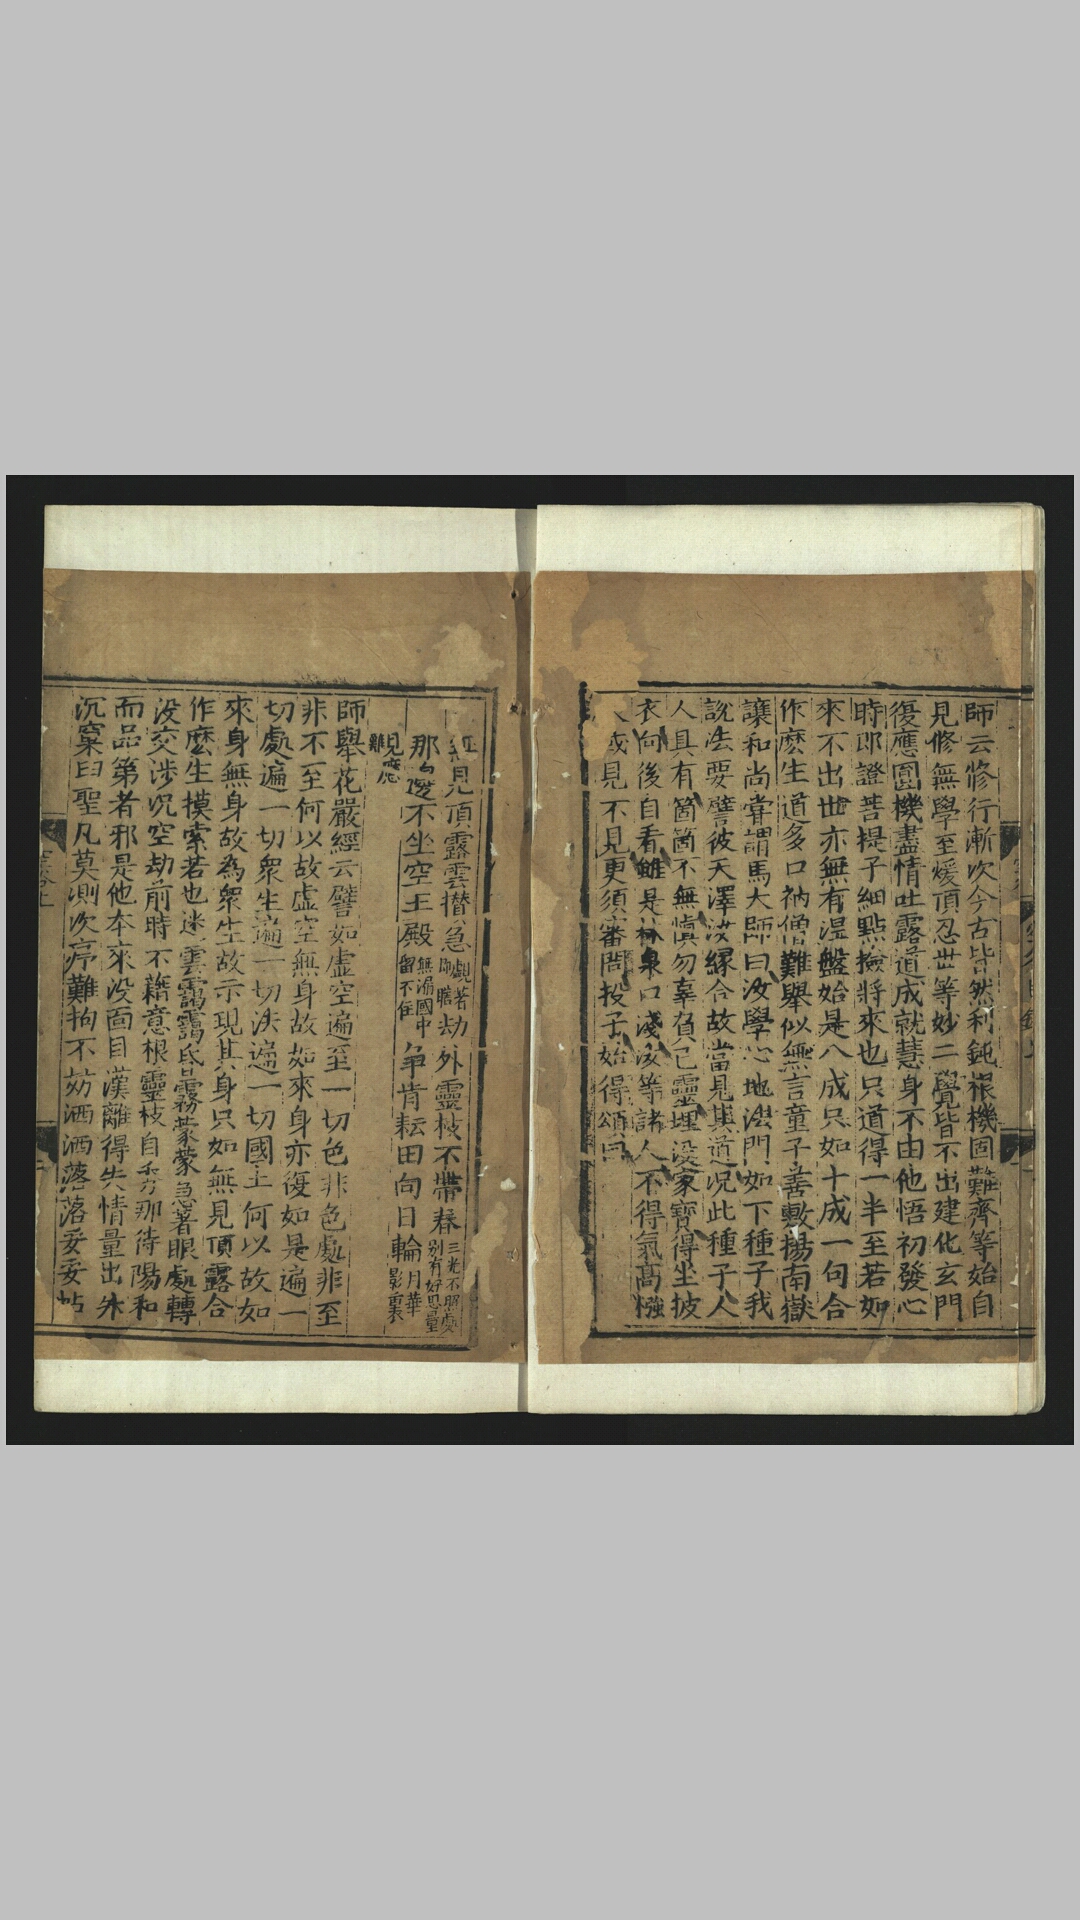 師云修行漸次今古皆然利鈍根機固難齊等始自
見修無學至煖頂忍世等妙二覺皆不出建化玄門
復應圓機盡情吐露道成就慧身不由他悟初發心
時即證菩提子細點撿將來也只道得一半至若如
來不出世亦無有涅盤始是八成只如十成一句合
作麽生道多口衲僧難舉似無言童子善敷揚南嶽
讓和尚甞謂馬大師曰汝學心地法門如下種子我
說法要譬彼天澤汝緣合故當見其道況此種子人
人具有箇箇不無慎勿辜負己靈埋没家寶得坐披
衣向後自看雖是林泉口淺汝等諸人不得氣高檥
或見不見更須審問投子始得頌曰
見頂露雲攅急覷著即瞎劫外靈枝不帶春三光不照處别有好思量
那邊不坐空王殿無漏國中留不住争肯耘田向日輪月華影裏
見應難
師舉花嚴經云譬如虚空遍至一切色非色處非至
非不至何以故虚空無身故如來身亦復如是遍一
切處遍一切衆生遍一切法遍一切國土何以故如
來身無身故為衆生故示現其身只如無見頂露合
作麽生摸索若也迷雲靄靄昏霧蒙蒙急著眼處轉
没交涉沉空劫前時不藉意根靈枝自秀那待陽和
而品第者邪是他本來没面目漢離得失情量出外
沉窠臼聖凡莫測次序難拘不妨洒洒落落妥妥帖